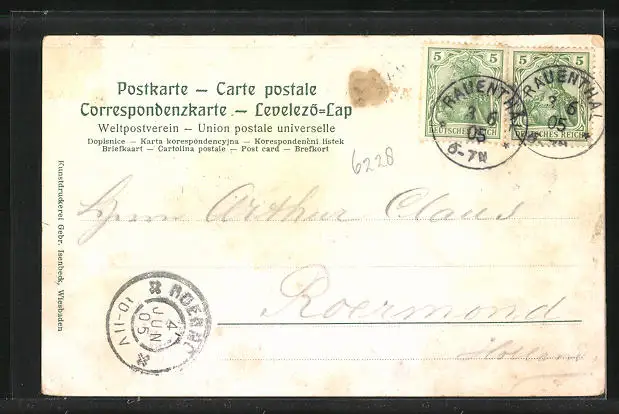 Postkarte – Carte postale
Correspondenzkarte – Levelező-Lap
Weltpostverein – Union postale universelle
Dopisnice – Karta korespóndencyjna – Korespondenční lístek
Briefkaart – Cartolina postale – Post card – Brefkort
5 5
DEUTSCHES REICH
RAUENTHAL
3 6
05
6-7N
5 5
DEUTSCHES REICH
RAUENTHAL
3 6
05
6228
Kunstdruckerei Gebr. Isenbeck, Wiesbaden
Herrn Arthur Claus
Roermond
Holland
ROERMOND
4
JUN
05
10-11V